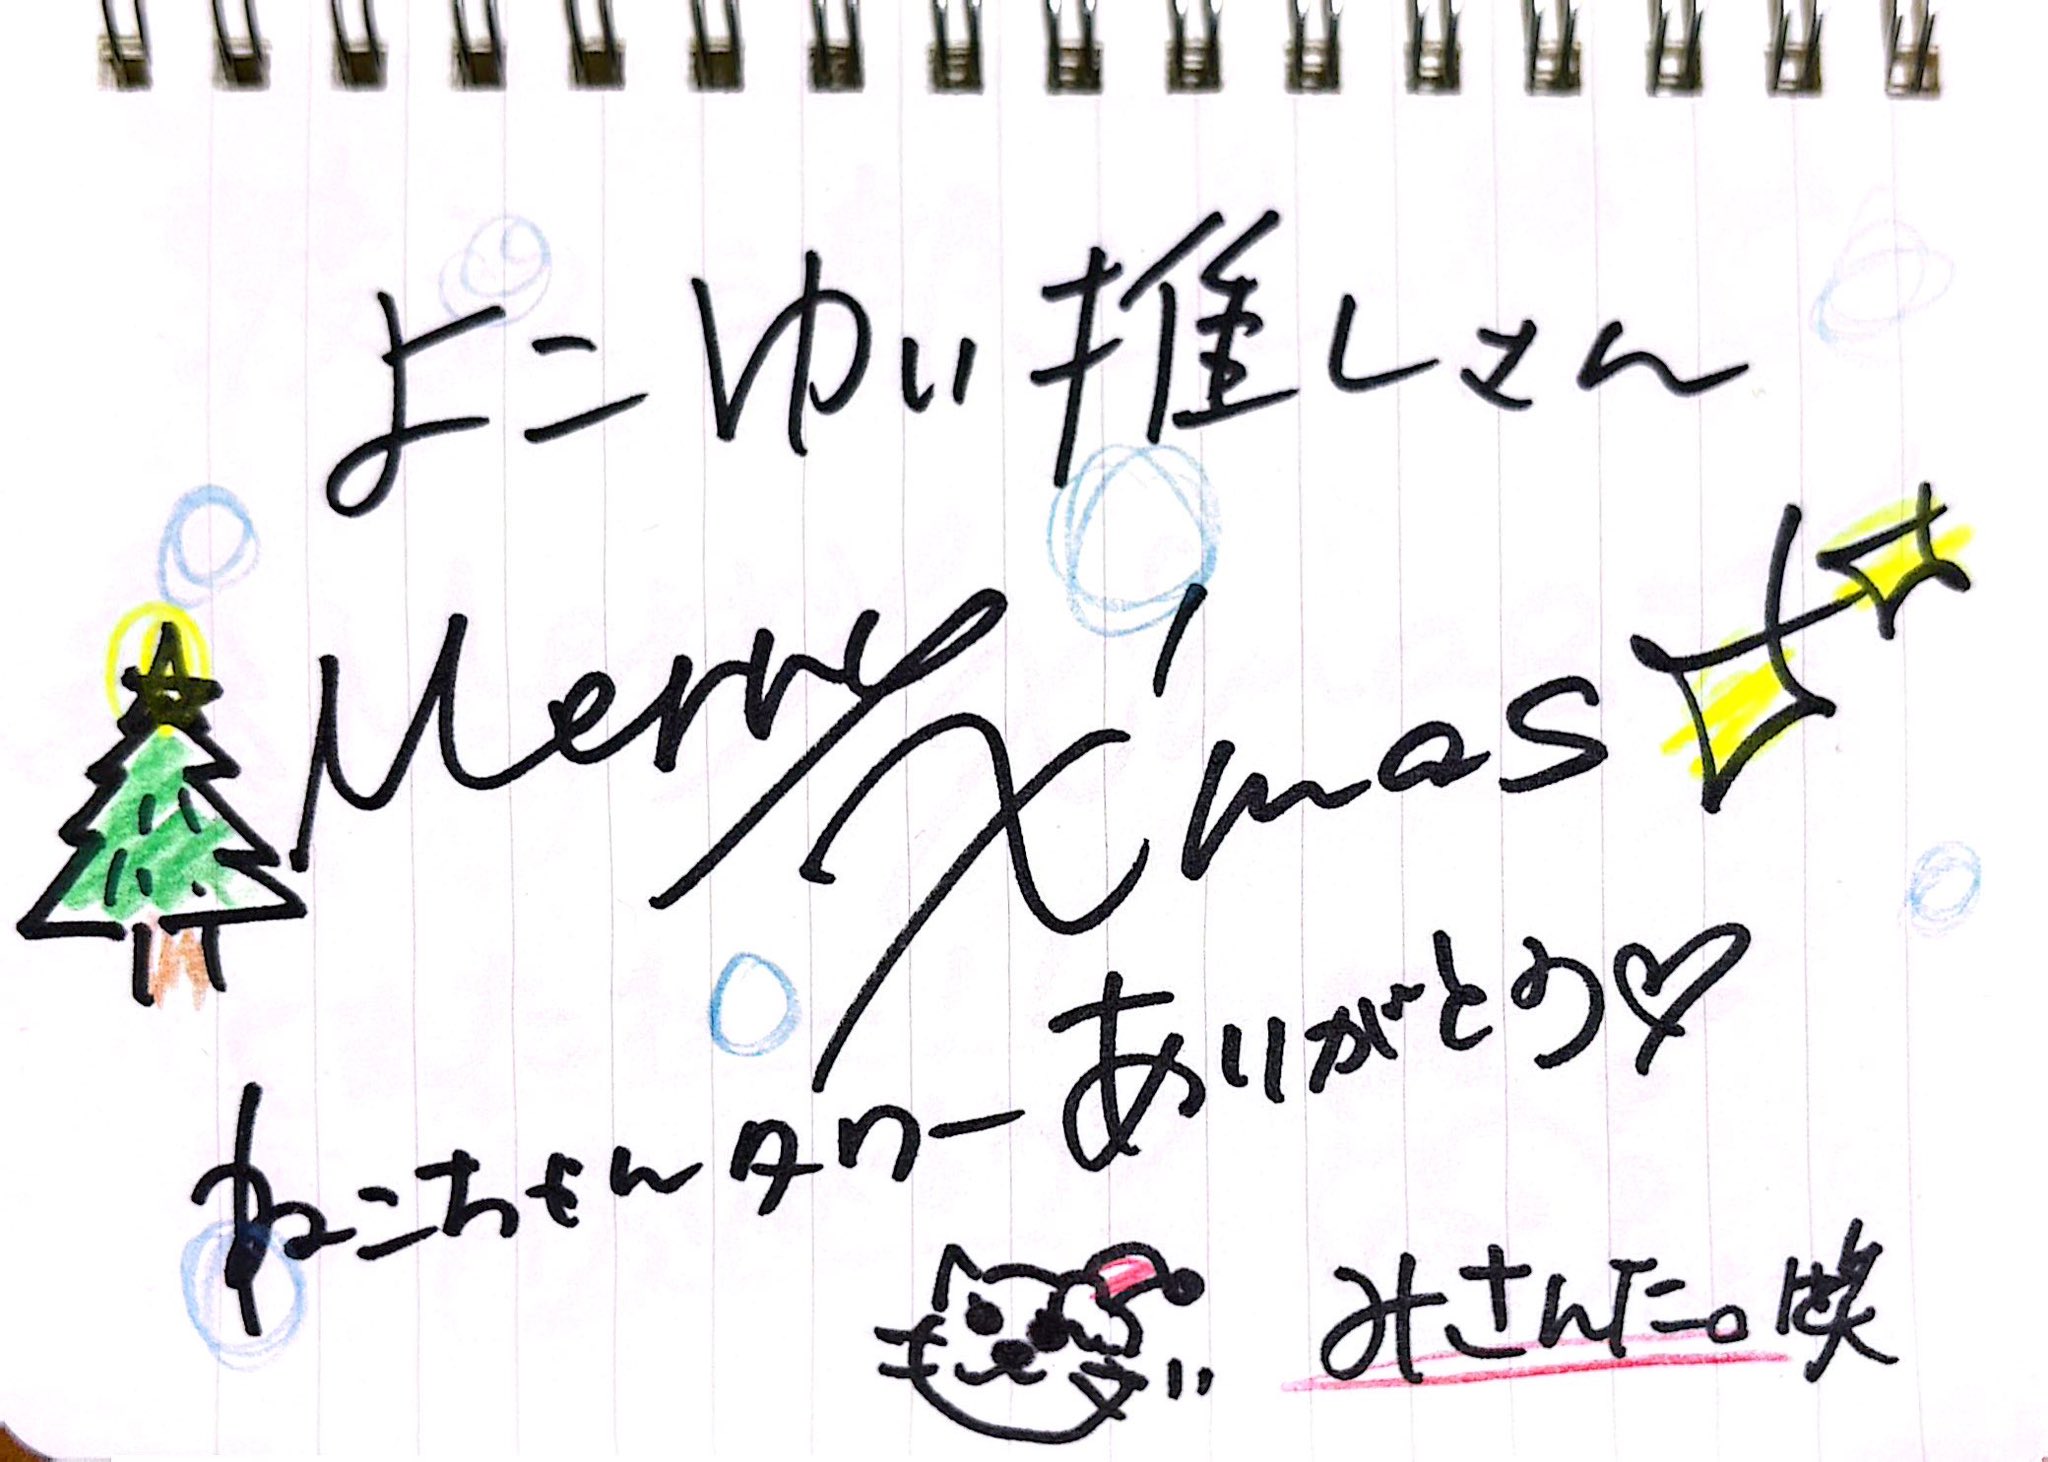 よこゆい推しさん
Merry X'mas
ねこちゃんタワーありがとう♡
みさんたー。笑